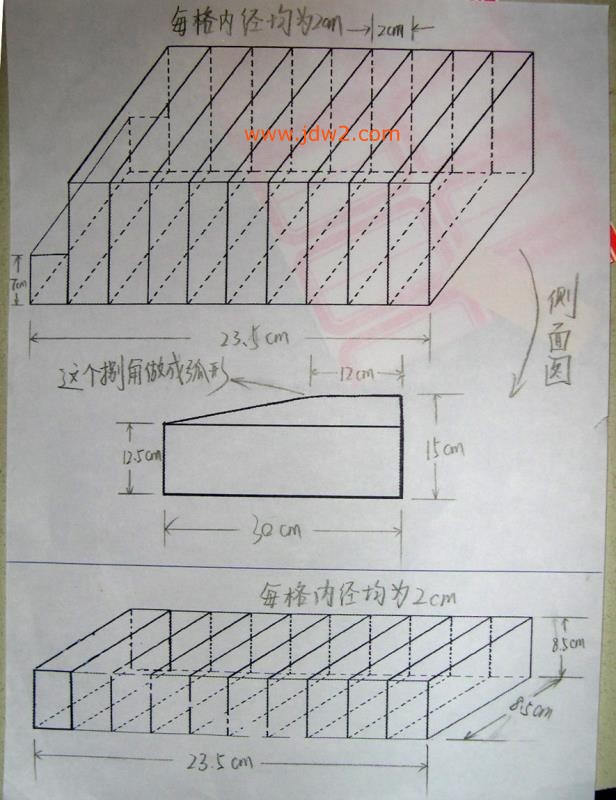 每格内径均为2cm
2cm
www.jdw2.com
7cm
23.5cm
侧面图
这个拐角做成弧形
12cm
12.5cm
15cm
30cm
每格内径均为2cm
8.5cm
8.5cm
23.5cm